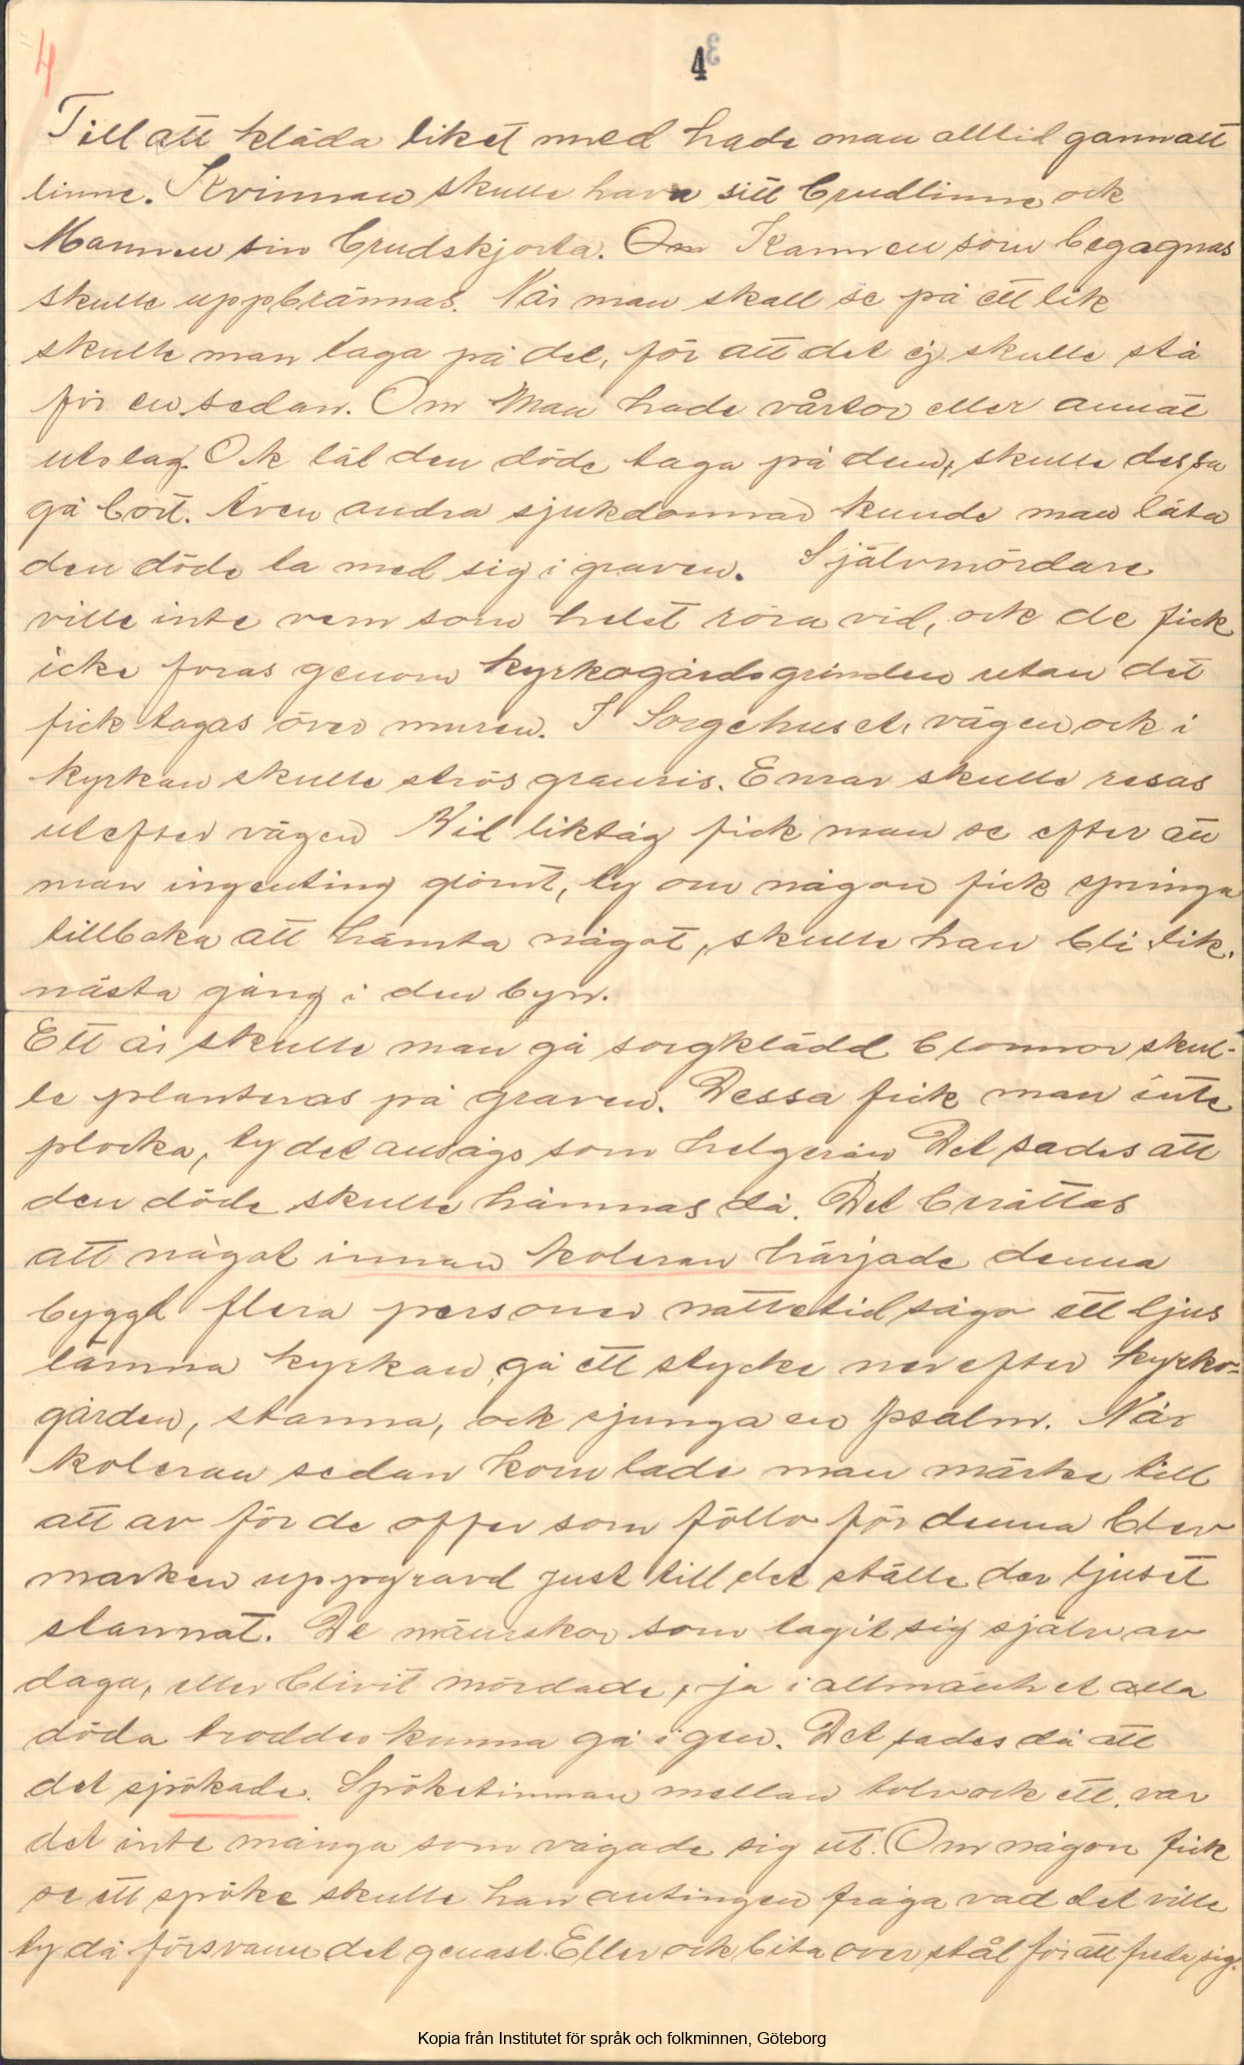 4
4
Till att kläda liket med hade man alltid gammalt
linne. Kvinnan skulle hava sitt brudlinne ock
Mannen sin brudskjorta. Kammen som begagnas
skulle uppbrännas. När man skall se på ett lik
skulle man taga på det, för att det ej skulle stå
för en sedan. Om Man hade vårtor eller annat
utslag. Ock lät den döde taga på dem, skulle dessa
gå bort. Även andra sjukdommar kunde man låta
den döde ta med sig i graven. Självmördare
ville inte vem som helst röra vid, ock de fick
icke foras genom kyrkogårdsgrinden utan det
fick tagas över muren. I Sorgehuset, vägen ock i
kyrkan skulle strös granris. Enrar skulle resas
utefter vägen Vid liktåg fick man se efter att
man ingenting glömt, ty om någon fick springa
tillbaka att hämta något, skulle han bli lik
nästa gång i den byn.
Ett år skulle man gå sorgklädd Blommor skul-
le planteras på graven. Dessa fick man inte
plocka, ty det ansågs som helgerån Det sades att
den döde skulle hämnas då. Det berättas
att något innan koleran härjade denna
byggd flera personer nattetid sågo ett ljus
lämna kyrkan, gå ett stycke nerefter kyrko=
gården, stanna, ock sjunga en psalm. När
koleran sedan kom lade man märke till
att av för de offer som föllo för denna blev
marken uppgravd just till det ställe der ljuset
stannat. De mänskor som tagit sig själv av
daga, eller blivit mördade, ja i allmänhet alla
döda troddes kunna gå igen. Det sades då att
det spökade. Spöketimman mellan tolv ock ett, var
det inte många som vågade sig ut. Om någon fick
se ett spöke skulle han antingen fråga vad det ville
ty då försvann det genast. Eller ock bita over stål för att freda sig.
Kopia från Institutet för språk och folkminnen, Göteborg